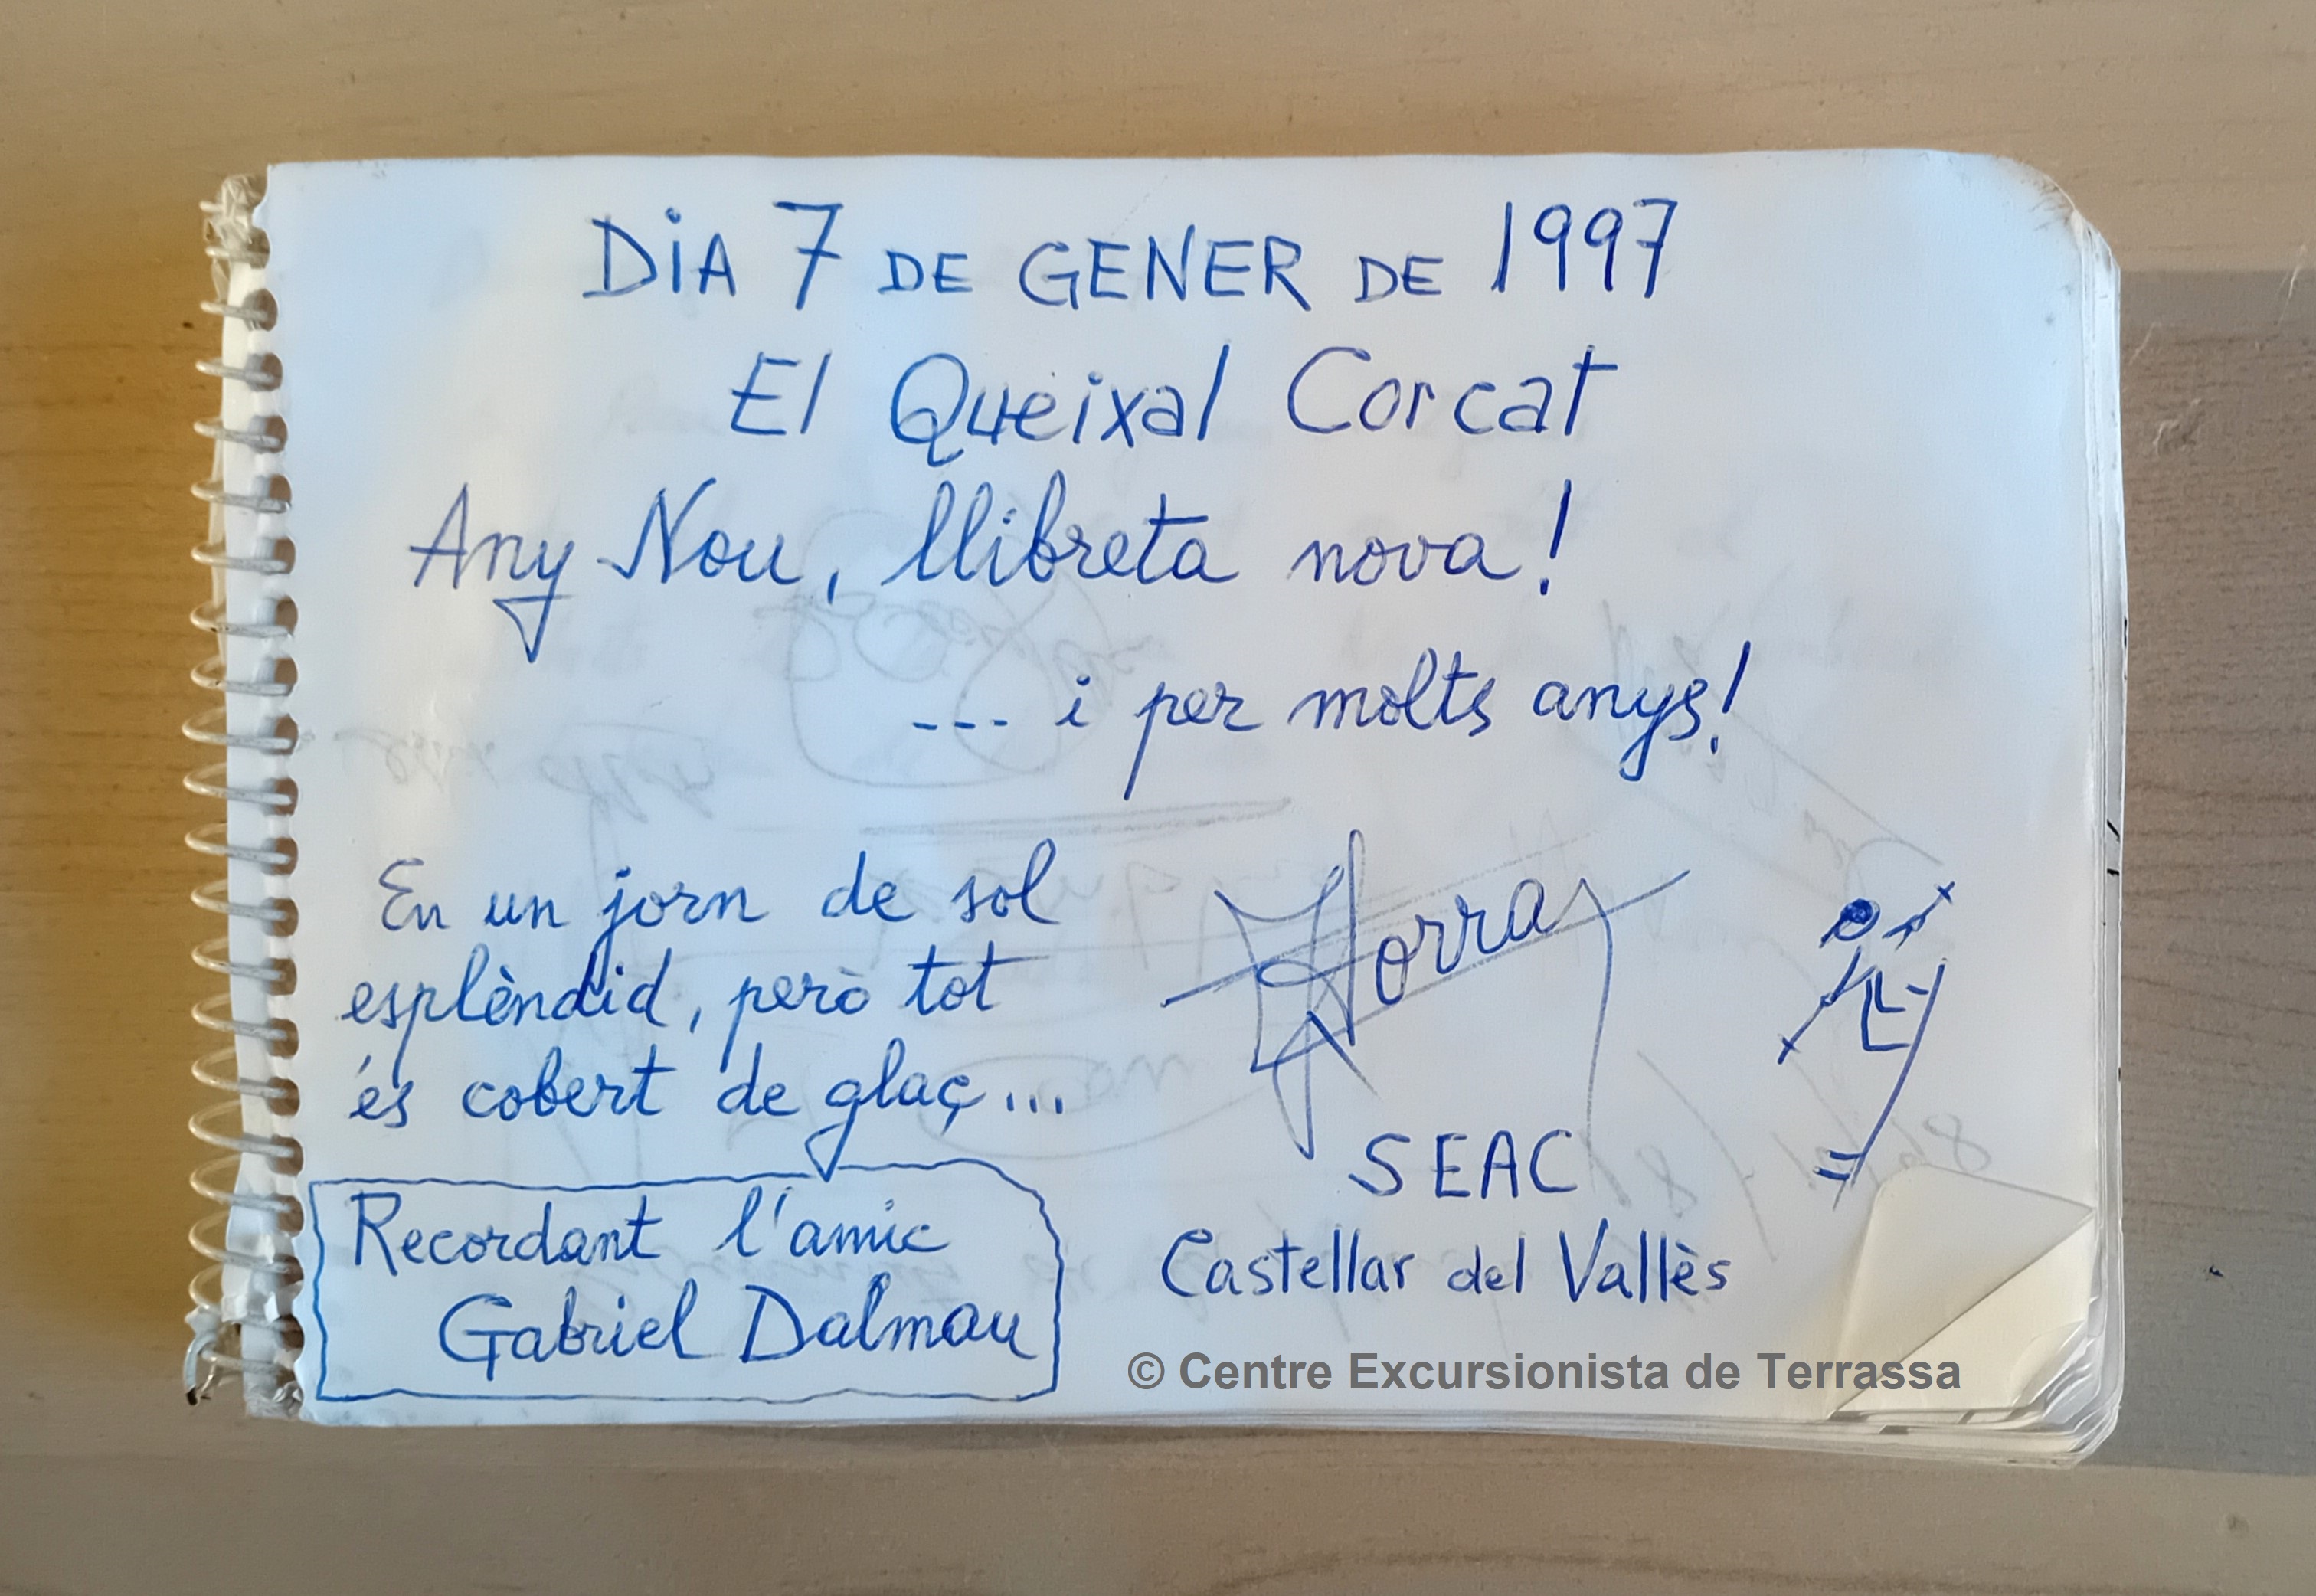 DiA 7 DE GENER DE 1997
El Queixal Corcat
Any Nou, llibreta nova!
--- i per molts anys!
En un jorn de sol
esplèndid, però tot
és cobert de glaç...
Recordant l'amic
Gabriel Dalmau
SEAC
Castellar del Vallès
© Centre Excursionista de Terrassa